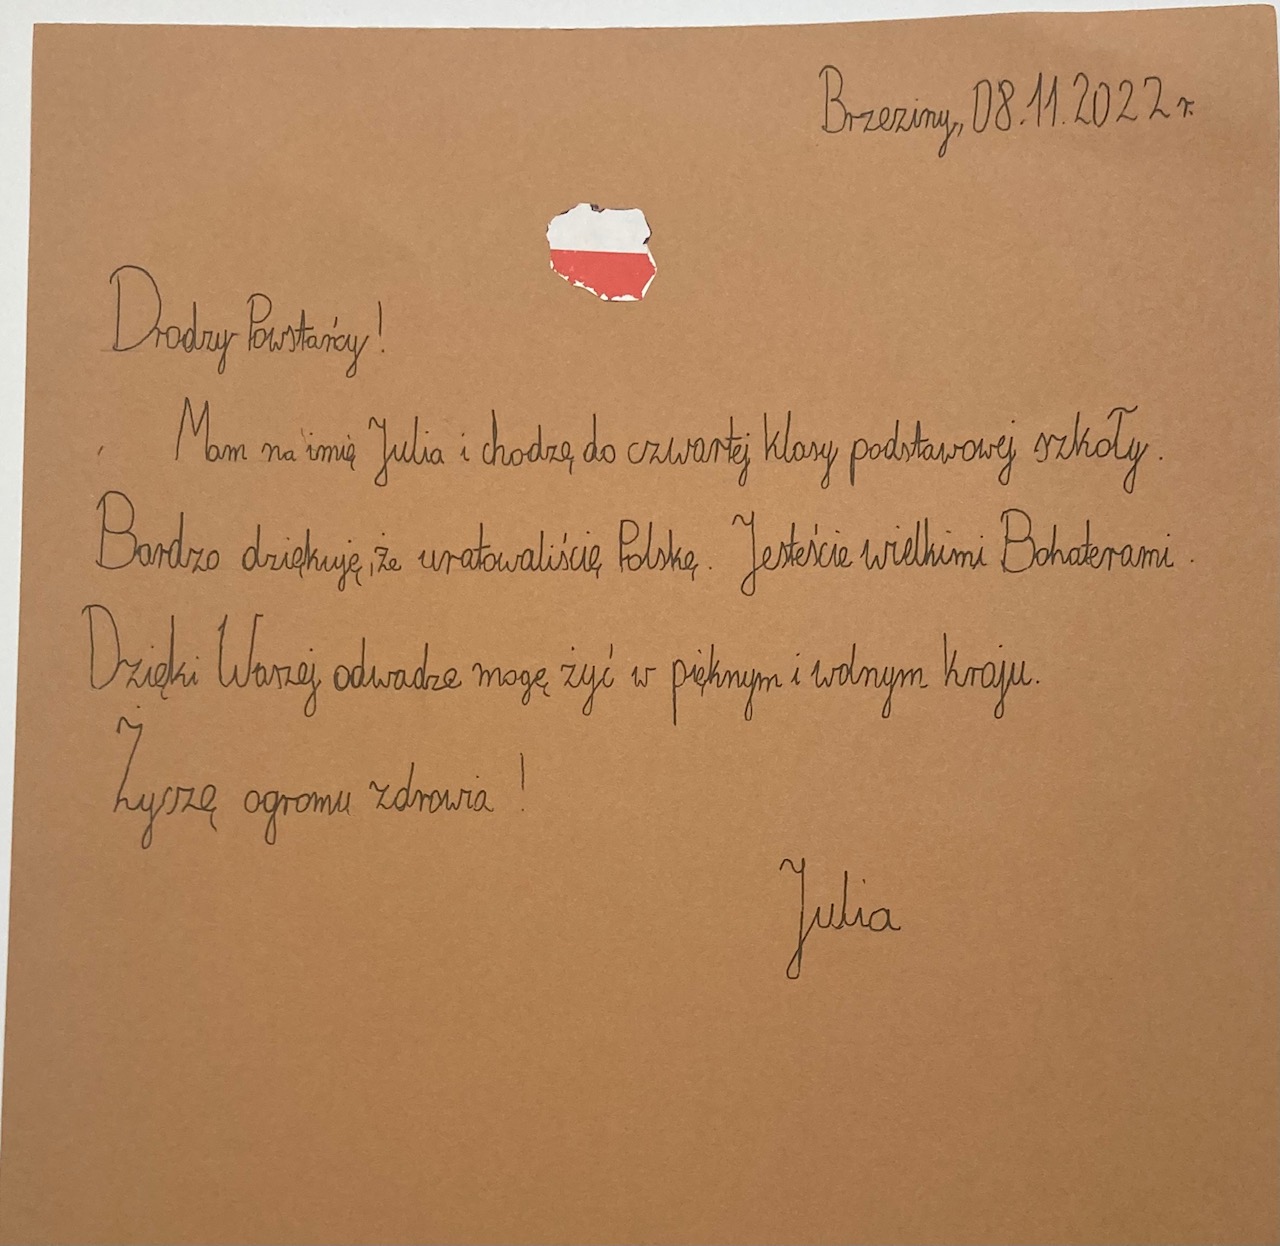 Brzeziny, 08.11.2022 r.
Drodzy Powstańcy!
Mam na imię Julia i chodzę do czwartej klasy podstawowej szkoły.
Bardzo dziękuję, że uratowaliścię Polskę. Jesteście wielkimi Bohaterami.
Dzięki Waszej odwadze mogę żyć w pięknym i wolnym kraju.
Życzę ogromu zdrowia!
Julia